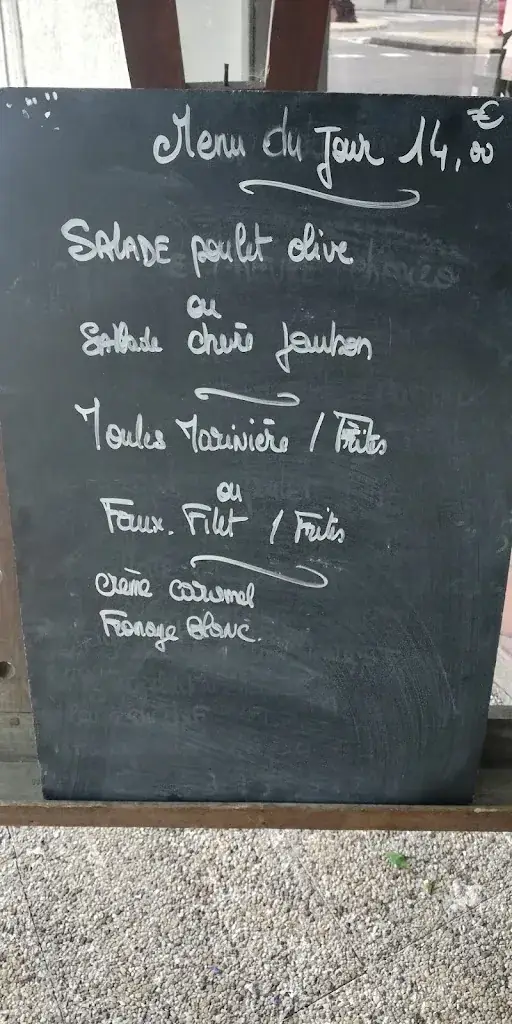 Menu du Jour 14,00 €
SALADE poulet olive
ou
Salade chèvre Jambon
Moules Marinière / Frites
ou
Faux. Filet / Frites
crème caramel
Fromage Blanc.